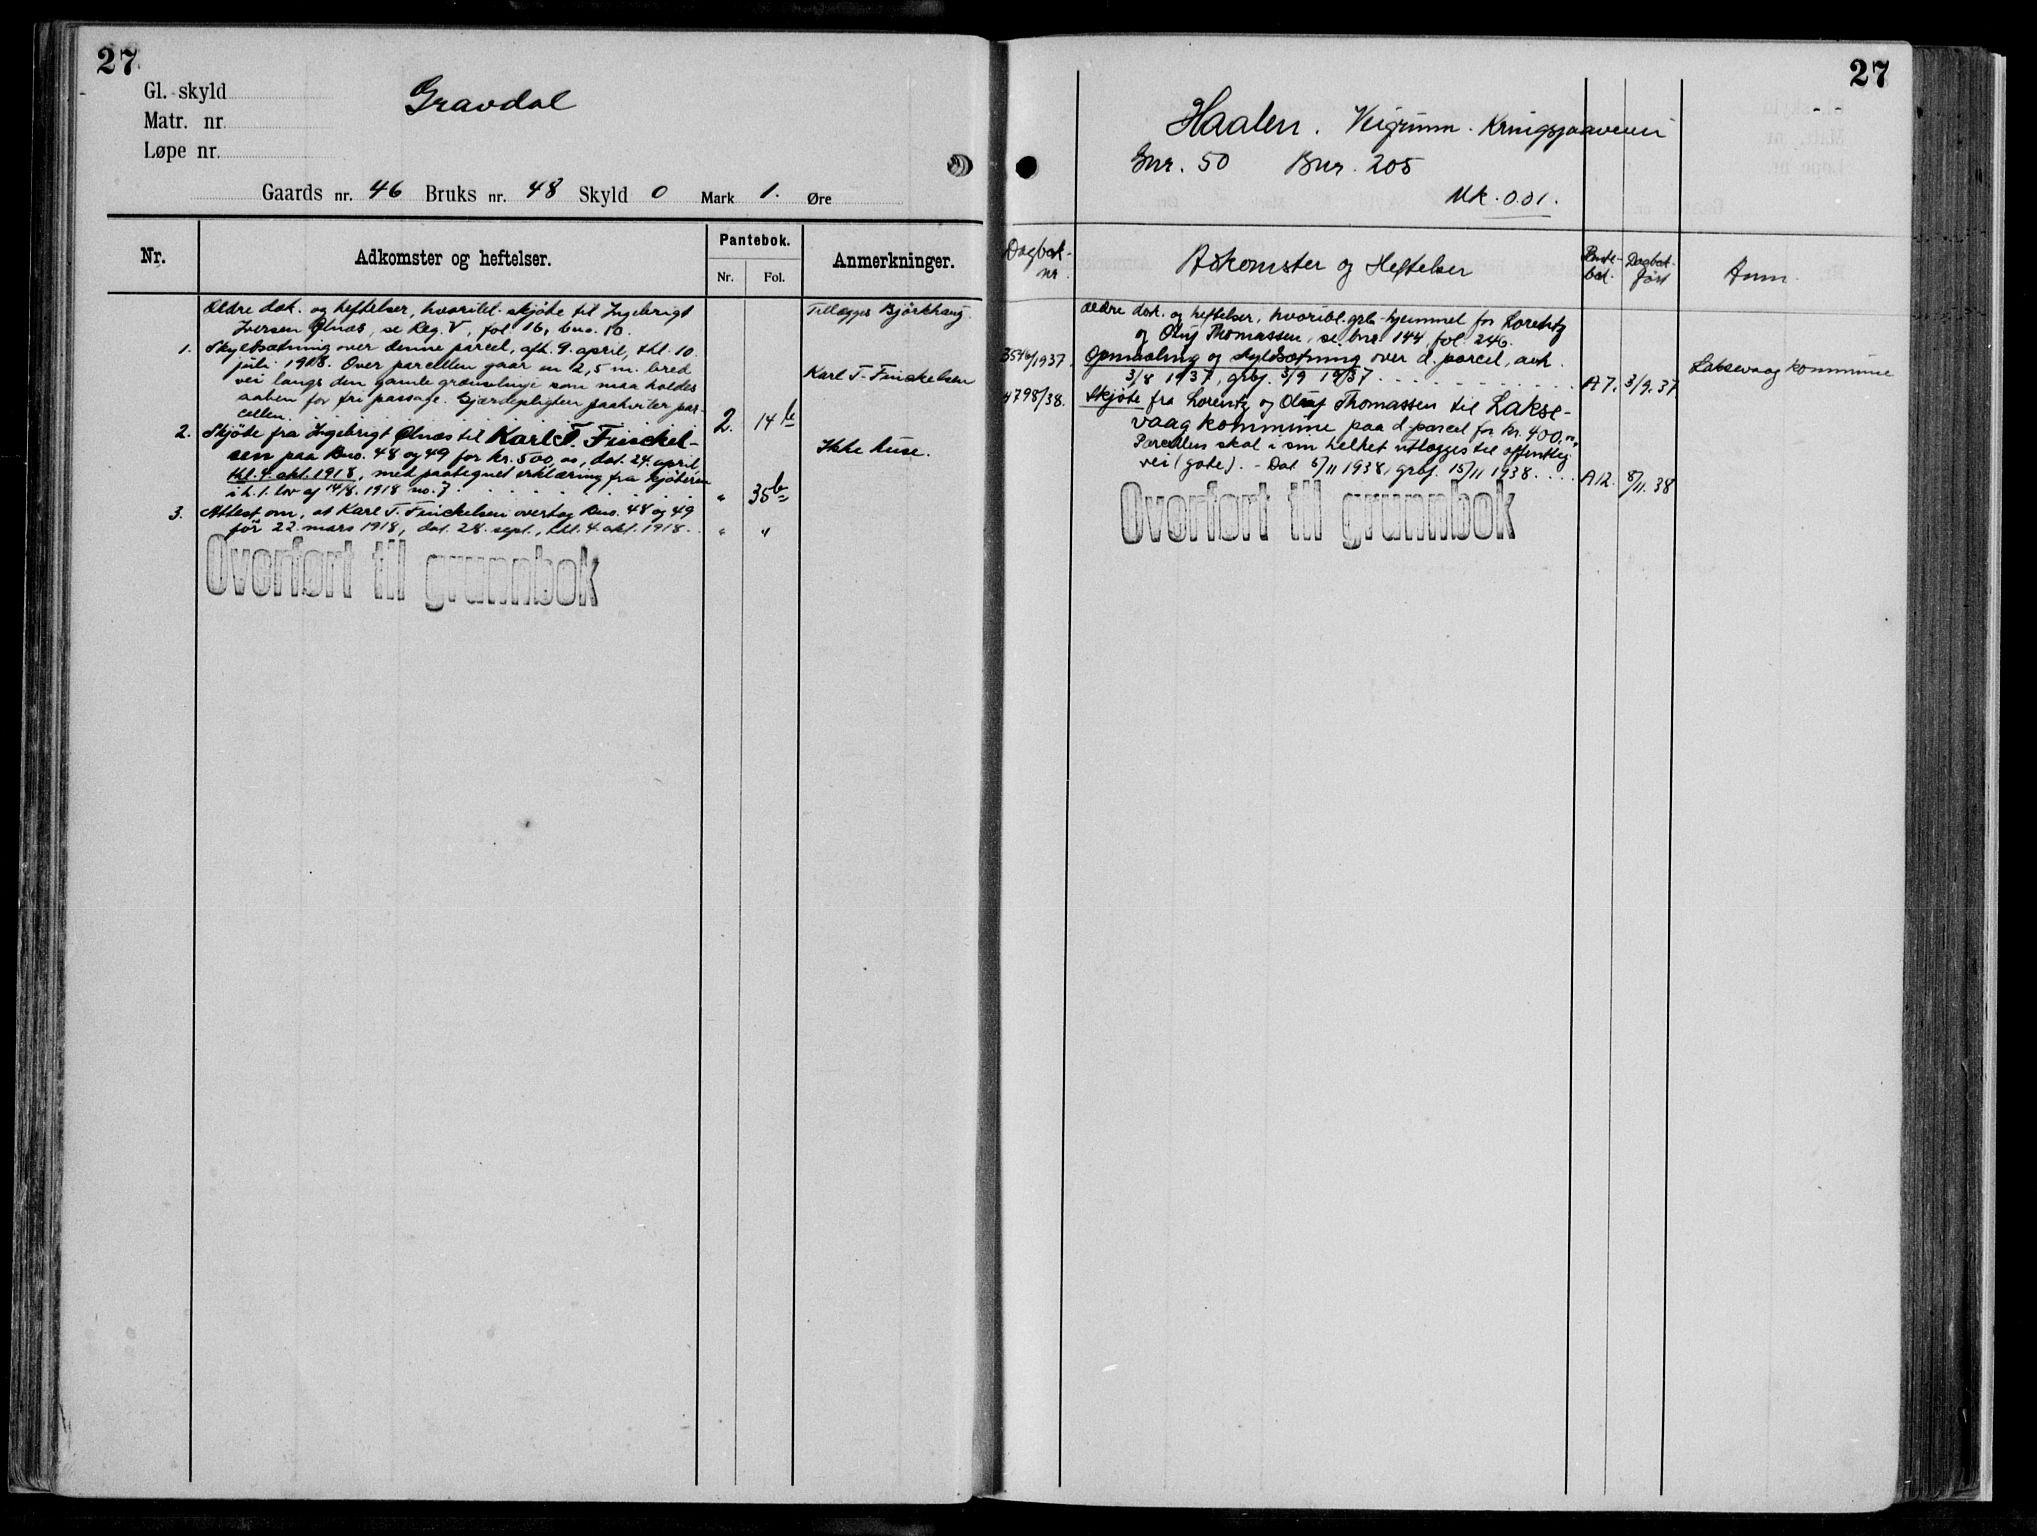 27
Gl. skyld
Matr. nr.
Løpe nr.
Gravdal
Gaards nr. 46 Bruks nr. 48 Skyld 0 Mark 1. Øre
Nr.
Adkomster og heftelser.
Pantebok.
Nr. Fol.
Anmerkninger.
Ældre dok. og heftelser, hvoribl. skjøte til Ingebrigt
Iversen Ølnæs, se Reg. V, fol. 16, bno. 10.
Tillægges Bjørkhaug.
1. Skyldsætning over denne parcel, afh. 9. april, thl. 10.
juli 1918. Over parcellen gaar en 2,5 m. bred
vei langs den gamle grænselinje som maa holdes
aaben for fri passage. Gjærdepligten paahviler par-
cellen. 2. 14 b
Karl T. Finckelsen
2. Skjøte fra Ingebrigt Ølnæs til Karl T. Finckel-
sen paa Bno. 48 og 49 for kr. 500,00, dat. 24. april,
thl. 4. okt. 1918, med paategnet erklæring fra kjøberen
i h. t. lov af 14/8. 1918 no. 3 " 35 b
Ikke huse.
3. Attest om, at Karl T. Finckelsen overtog Bno. 48 og 49
før 22. mars 1918, dat. 28. sept., thl. 4. okt. 1918. " "
Overført til grunnbok
27
Haalen. Veigrunn.
Gnr. 50 Bnr. 205
Mk. 0.01.
Dagbok-
nr.
Adkomster og Heftelser
Pante-
bok.
Dagbok-
ført
Anm.
Ældre dok. og heftelser, hvoribl. grb-hjemmel for Lorentz
og Oluf Thomassen, se bnr. 144, fol. 246.
3546/1937. Opmaaling og skyldsætning over d. parcel, avh.
3/8 1937, grbf. 3/9 1937 A 7. 3/9. 37
Laksevaag kommune
4798/38. Skjøte fra Lorentz og Oluf Thomassen til Lakse-
vaag kommune paa d. parcel for kr. 400.
Parcellen skal i sin helhet utlægges til offentlig
vei (gate). - Dat 5/11 1938, grbf. 15/11 1938. A 12. 8/11. 38
Overført til grunnbok